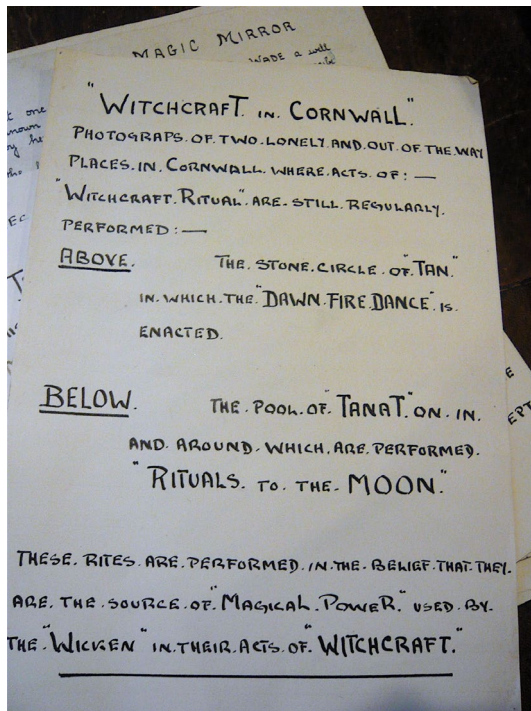 MAGIC MIRROR
WADE a well
"WITCHCRAFT. IN. CORNWALL."
PHOTOGRAPS. OF. TWO. LONELY. AND. OUT. OF. THE. WAY
PLACES. IN. CORNWALL. WHERE. ACTS. OF: —
"WITCHCRAFT. RITUAL". ARE. STILL. REGULARLY.
PERFORMED: —
ABOVE. THE. STONE. CIRCLE. OF. "TAN."
IN. WHICH. THE. "DAWN. FIRE. DANCE". IS.
ENACTED.
BELOW. THE. POOL. OF. "TANAT." ON. IN.
AND. AROUND. WHICH. ARE. PERFORMED.
"RITUALS. TO. THE. MOON."
THESE. RITES. ARE. PERFORMED. IN. THE. BELIEF. THAT. THEY.
ARE. THE. SOURCE. OF. "MAGICAL. POWER." USED. BY.
THE. "WICKEN" IN. THEIR. ACTS. OF. "WITCHCRAFT."